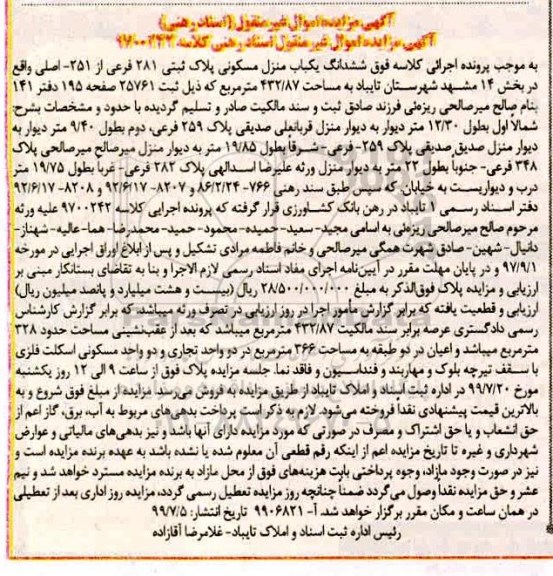 آگهی مزایده اموال غیر منقول (اسناد رهنی)
آگهی مزایده اموال غیر منقول اسناد رهنی کلاسه ۹۷۰۰۲۴۲
به موجب پرونده اجرائی کلاسه فوق ششدانگ یکباب منزل مسکونی پلاک ثبتی ۲۸۱ فرعی از ۲۵۱- اصلی واقع
در بخش ۱۴ مشهد شهرستان تایباد به مساحت ۴۳۲/۸۷ مترمربع که ذیل ثبت ۲۵۷۶۱ صفحه ۱۹۵ دفتر ۱۴۱
بنام صالح میرصالحی ریزه‌ئی فرزند صادق ثبت و سند مالکیت صادر و تسلیم گردیده با حدود و مشخصات بشرح:
شمالاً اول بطول ۱۲/۳۰ متر دیوار به دیوار منزل قربانعلی صدیقی پلاک ۲۵۹ فرعی، دوم بطول ۹/۴۰ متر دیوار به
دیوار منزل صدیق صدیقی پلاک ۲۵۹- فرعی- شرقاً بطول ۱۹/۸۵ متر به دیوار منزل میرصالح میرصالحی پلاک
۳۴۸ فرعی- جنوباً بطول ۲۲ متر به دیوار منزل ورثه علیرضا اسدالهی پلاک ۲۸۲ فرعی- غرباً بطول ۱۹/۷۵ متر
درب و دیواریست به خیابان که سپس طبق سند رهنی ۷۶۶- ۸۶/۲/۲۴ و ۸۲۰۷- ۹۲/۶/۱۷ و ۸۲۰۸- ۹۲/۶/۱۷
دفتر اسناد رسمی ۱ تایباد در رهن بانک کشاورزی قرار گرفته که پرونده اجرایی کلاسه ۹۷۰۰۲۴۲ علیه ورثه
مرحوم صالح میرصالحی ریزه‌ئی به اسامی مجید- سعید- حمیده- محمود- حمید- محمدرضا- هما- عالیه- شهناز-
دانیال- شهین- صادق شهرت همگی میرصالحی و خانم فاطمه مرادی تشکیل و پس از ابلاغ اوراق اجرایی در مورخه
۹۷/۹/۱ و در پایان مهلت مقرر در آیین‌نامه اجرای مفاد اسناد رسمی لازم الاجرا و بنا به تقاضای بستانکار مبنی بر
ارزیابی و مزایده پلاک فوق‌الذکر به مبلغ ۲۸/۵۰۰/۰۰۰/۰۰۰ ریال (بیست و هشت میلیارد و پانصد میلیون ریال)
ارزیابی و قطعیت یافته که برابر گزارش مأمور اجرا در روز ارزیابی در تصرف ورثه میباشد که برابر گزارش کارشناس
رسمی دادگستری عرصه برابر سند مالکیت ۴۳۲/۸۷ مترمربع میباشد که بعد از عقب‌نشینی مساحت حدود ۳۲۸
مترمربع میباشد و اعیان در دو طبقه به مساحت ۳۶۶ مترمربع در دو واحد تجاری و دو واحد مسکونی اسکلت فلزی
با سقف تیرچه بلوک و مهاربند و فنداسیون و فاقد نما. جلسه مزایده پلاک فوق از ساعت ۹ الی ۱۲ روز یکشنبه
مورخ ۹۹/۷/۲۰ در اداره ثبت اسناد و املاک تایباد از طریق مزایده به فروش می‌رسد. مزایده از مبلغ فوق شروع و به
بالاترین قیمت پیشنهادی نقداً فروخته می‌شود. لازم به ذکر است پرداخت بدهی‌های مربوط به آب، برق، گاز اعم از
حق انشعاب و یا حق اشتراک و مصرف در صورتی که مورد مزایده دارای آنها باشد و نیز بدهی‌های مالیاتی و عوارض
شهرداری و غیره تا تاریخ مزایده اعم از اینکه رقم قطعی آن معلوم شده یا نشده باشد به عهده برنده مزایده است و
نیز در صورت وجود مازاد، وجوه پرداختی بابت هزینه‌های فوق از محل مازاد به برنده مزایده مسترد خواهد شد و نیم
عشر و حق مزایده نقداً وصول می‌گردد ضمناً چنانچه روز مزایده تعطیل رسمی گردد، مزایده روز اداری بعد از تعطیلی
در همان ساعت و مکان مقرر برگزار خواهد شد. آ- ۹۹۰۶۸۲۱ تاریخ انتشار: ۹۹/۷/۵
رئیس اداره ثبت اسناد و املاک تایباد- غلامرضا آقازاده